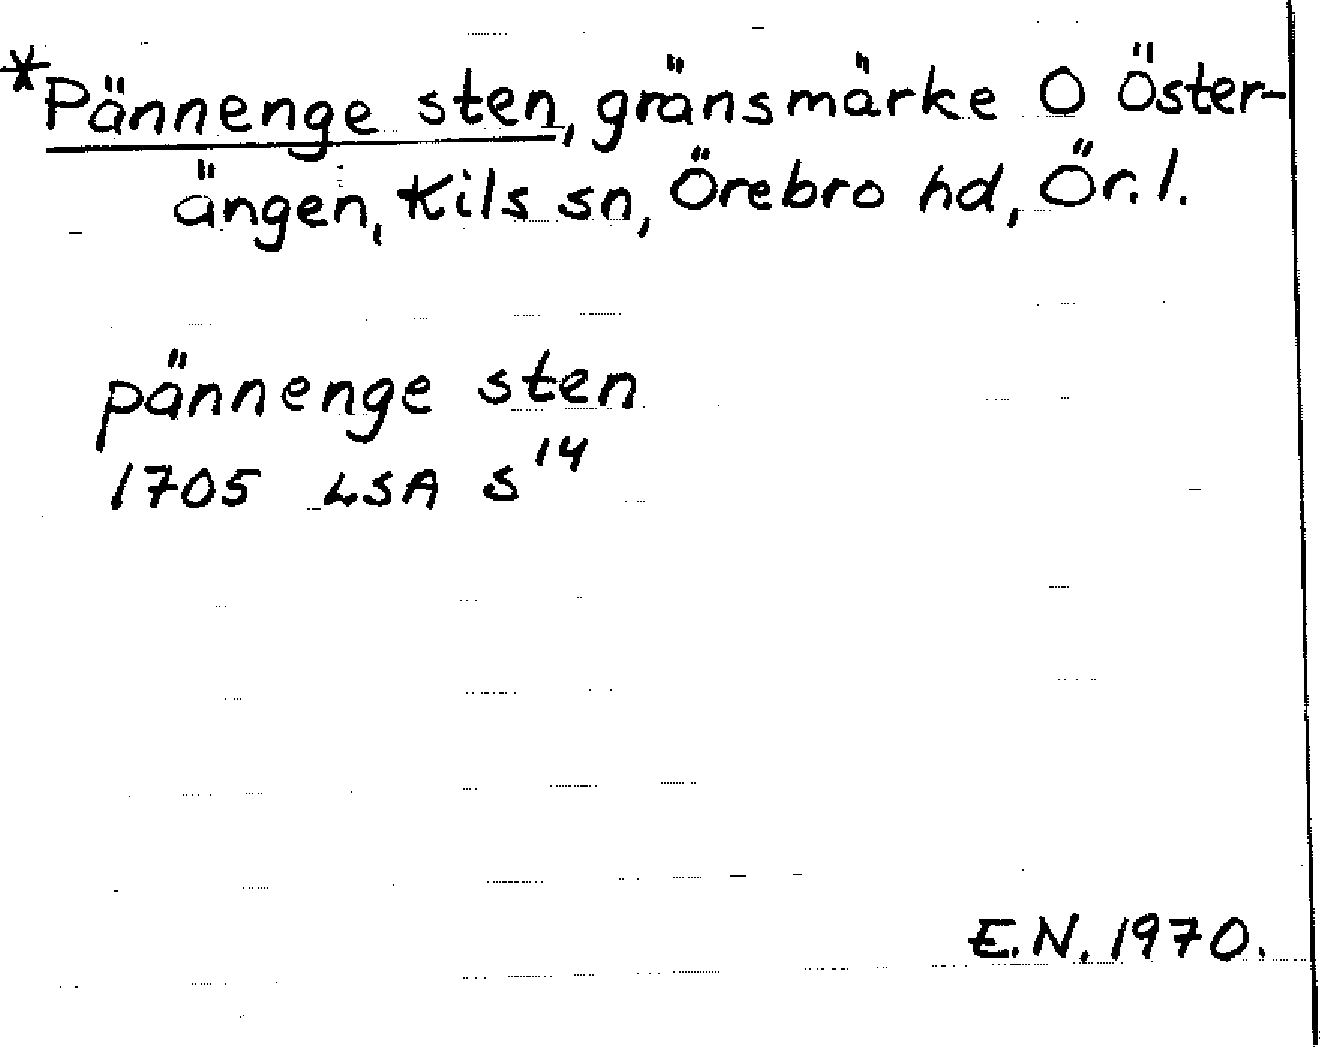 *Pännenge sten, gränsmärke O Öster-
ängen, Kils sn, Örebro hd, Ör. l.
pännenge sten
1705 LSA S¹⁴
E.N. 1970.